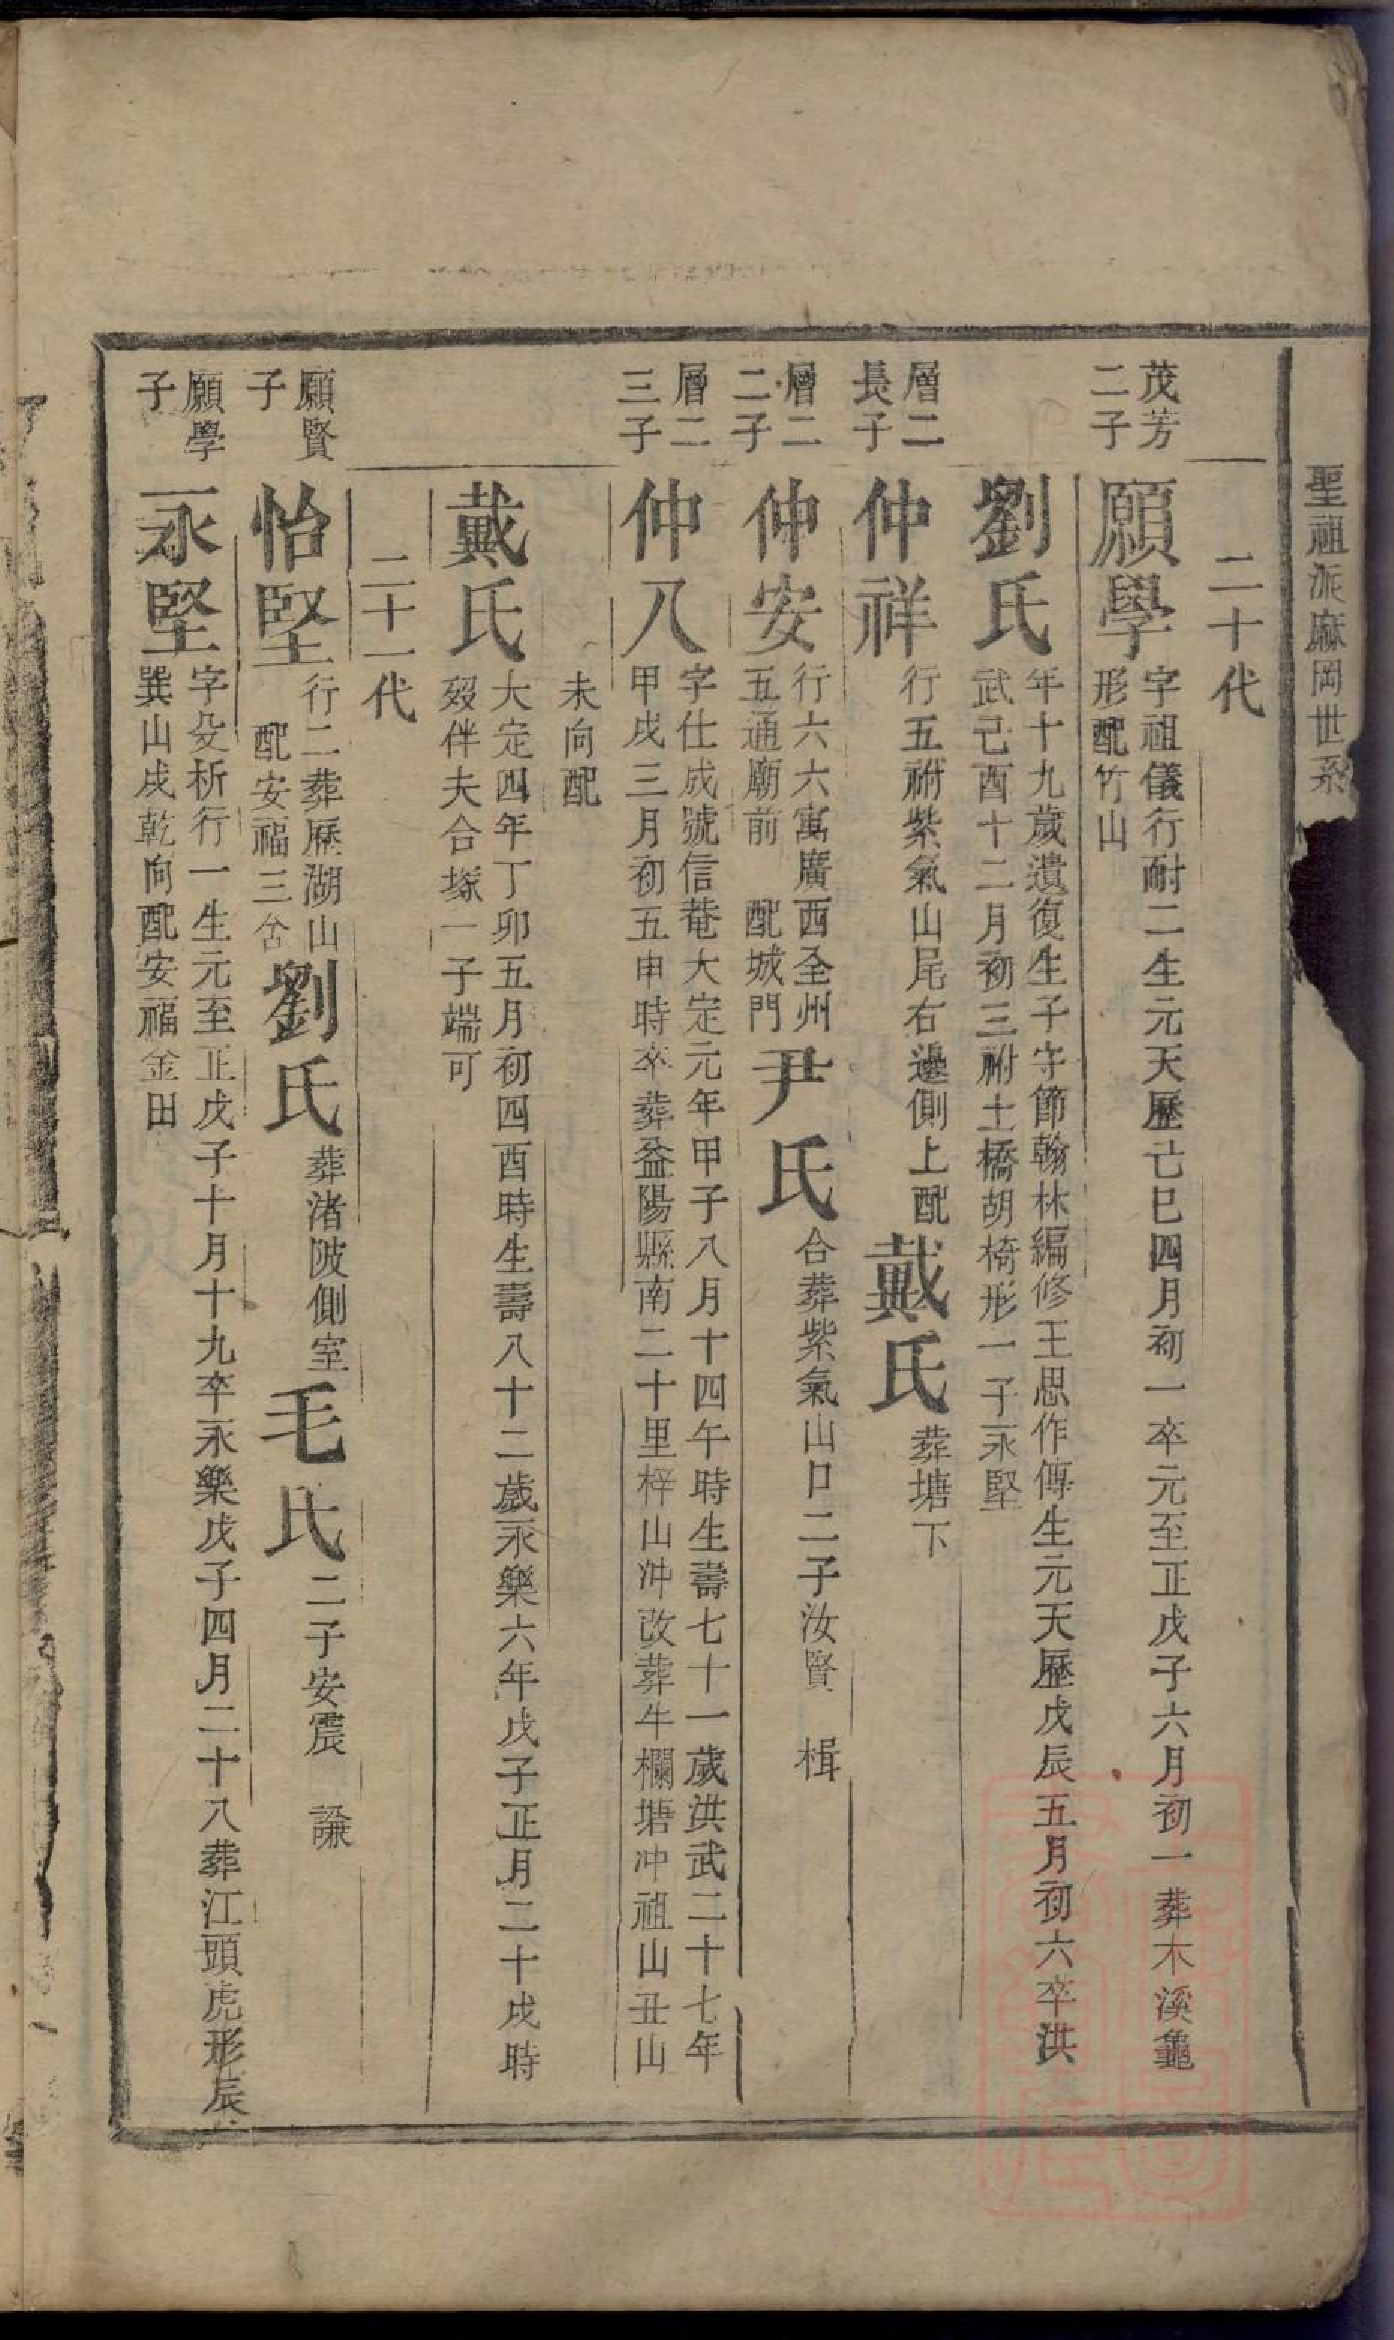 聖祖派麻岡世系
二十代
茂芳
二子
願學
字祖儀行耐二生元天歷己巳四月初一卒元至正戊子六月初一葬木溪龜
形配竹山
劉氏
年十九歲遺復生子守節翰林編修王思作傳生元天歷戊辰五月初六卒洪
武己酉十二月初三祔土橋胡椅形一子永堅
層二
長子
仲祥
行五祔紫氣山尾右邊側上配
戴氏
葬塘下
層二
二子
仲安
行六六寓廣西全州
五通廟前 配城門
尹氏
合葬紫氣山口二子汝賢 楫
層二
三子
仲八
字仕成號信菴大定元年甲子八月十四午時生壽七十一歲洪武二十七年
甲戌三月初五申時卒葬益陽縣南二十里梓山冲改葬牛欄塘冲祖山丑山
未向配
戴氏
大定四年丁卯五月初四酉時生壽八十二歲永樂六年戊子正月二十戌時
歿伴夫合塚一子端可
二十一代
願賢
子
怡堅
行二葬歷湖山
配安福三舍
劉氏
葬渚陂側室
毛氏
二子安震 謙
願學
子
永堅
字殳析行一生元至正戊子十月十九卒永樂戊子四月二十八葬江頭虎形辰
巽山戌乾向配安福金田